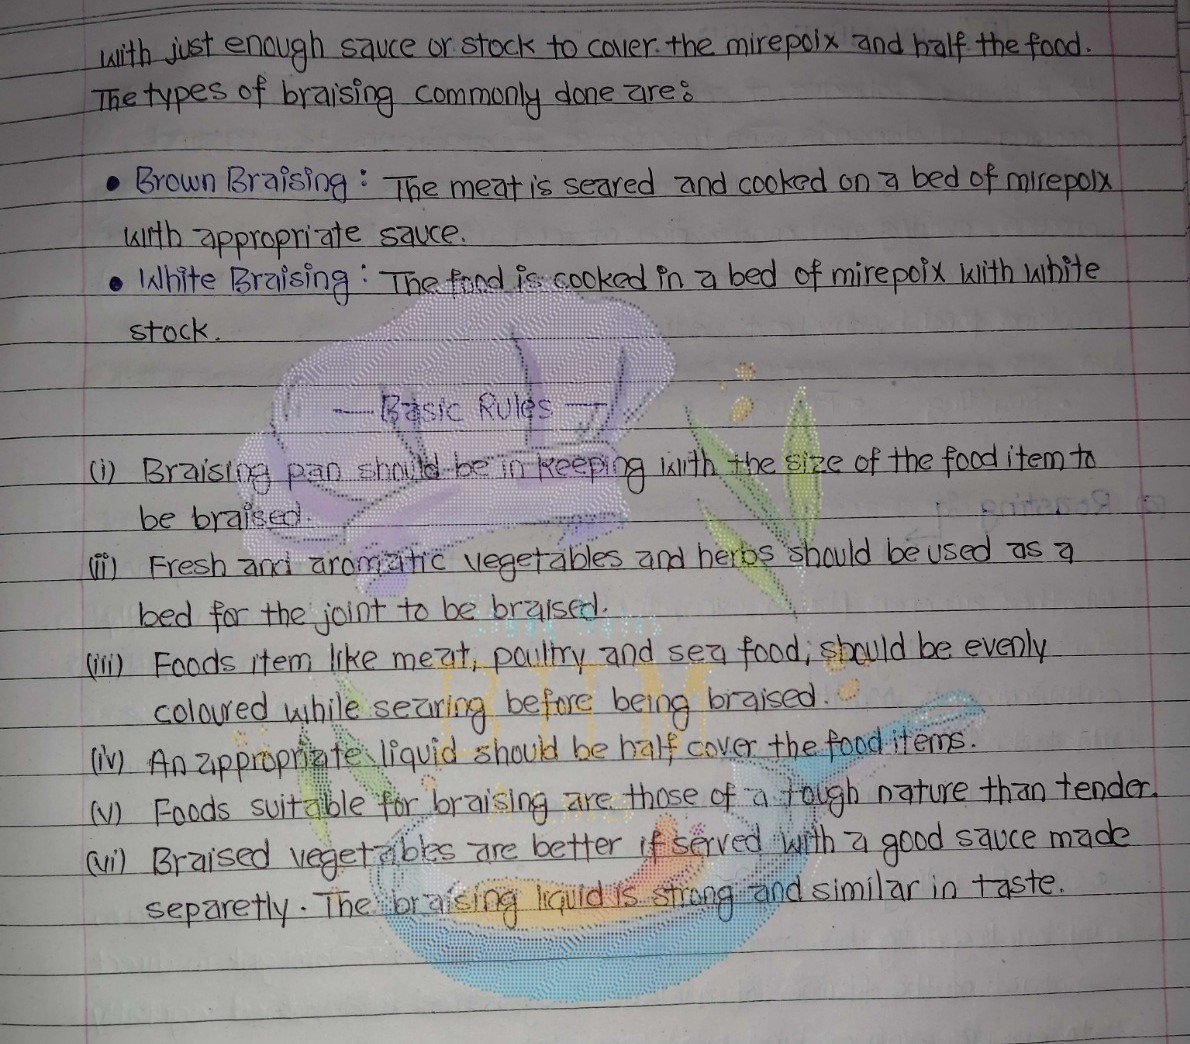 with just enough sauce or stock to cover the mirepoix and half the food.
The types of braising commonly done are:
• Brown Braising : The meat is seared and cooked on a bed of mirepoix
with appropriate sauce.
• White Braising : The food is cooked in a bed of mirepoix with white
stock.
— Basic Rules —
(i) Braising pan should be in keeping with the size of the food item to
be braised.
(ii) Fresh and aromatic vegetables and herbs should be used as a
bed for the joint to be braised.
(iii) Foods item like meat, poultry and sea food, should be evenly
coloured while searing before being braised.
(iv) An appropriate liquid should be half cover the food items.
(v) Foods suitable for braising are those of a tough nature than tender.
(vi) Braised vegetables are better if served with a good sauce made
separetly. The braising liquid is strong and similar in taste.